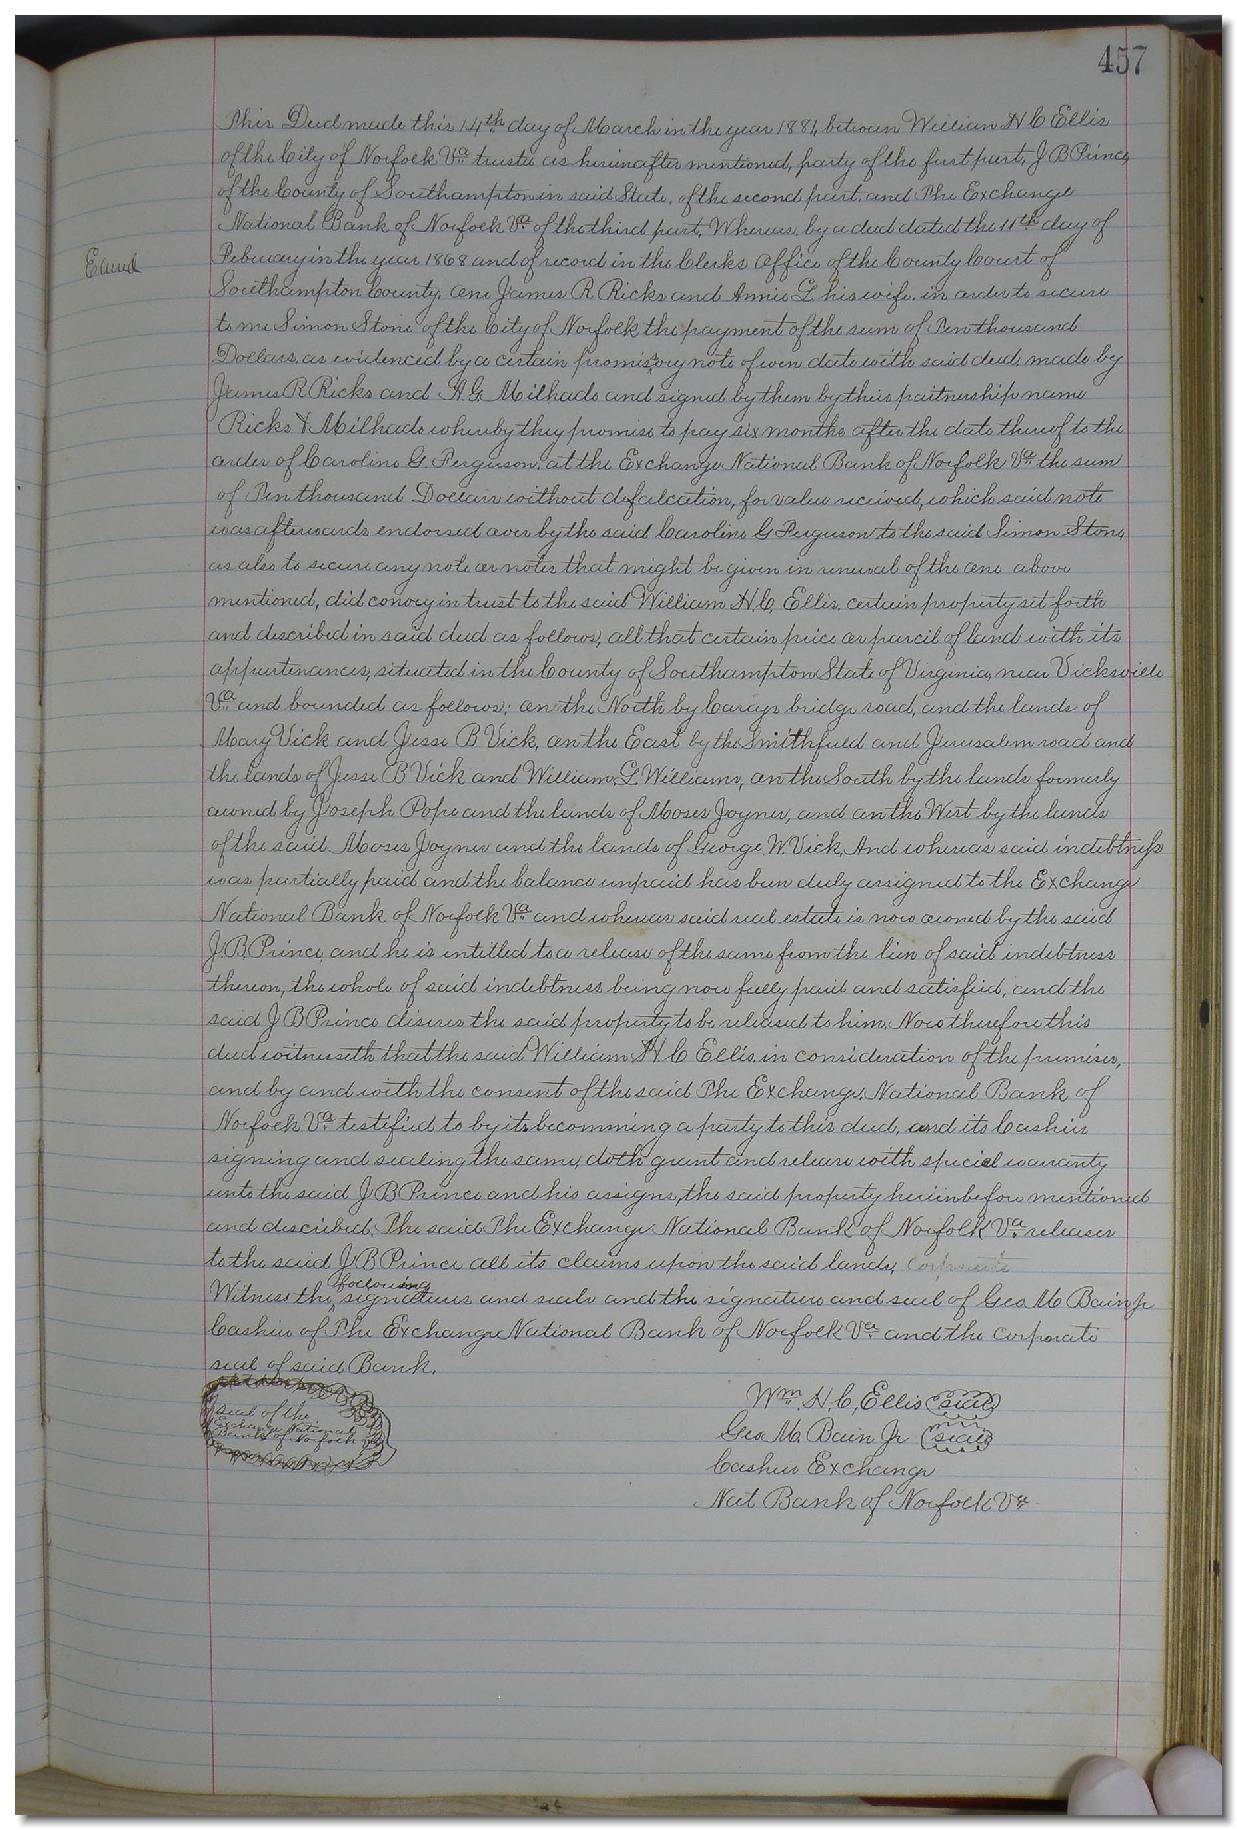 457
This Deed made this 14th day of March in the year 1881, between William H C Ellis
of the City of Norfolk Va trustee as hereinafter mentioned, party of the first part, J B Prince,
of the County of Southampton in said State, of the second part, and The Exchange
National Bank of Norfolk Va of the third part, Whereas, by a deed dated the 11th day of
February in the year 1868 and of record in the Clerks office of the County Court of
Exmd
Southampton County, one James R Ricks and Annie L his wife, in order to secure
to one Simon Stone of the City of Norfolk the payment of the sum of Ten thousand
Dollars, as evidenced by a certain promissory note of even date with said deed, made by
James R Ricks and H. G. Milhado and signed by them by their partnership name
Ricks & Milhado whereby they promise to pay six months after the date thereof to the
order of Caroline G Ferguson, at the Exchange National Bank of Norfolk Va the sum
of Ten thousand Dollars without defalcation, for value received, which said note
was afterwards endorsed over by the said Caroline G Ferguson to the said Simon Stone,
as also to secure any note or notes that might be given in renewal of the one above
mentioned, did convey in trust to the said William H C, Ellis, certain property set forth
and described in said deed as follows, all that certain peice or parcil of land with its
appurtenances, situated in the County of Southampton State of Virginia, near Vicksville
Va and bounded as follows; on the North by Carays bridge road, and the lands of
Mary Vick and Jesse B Vick, on the East by the Smithfield and Jerusalem road and
the lands of Jesse B Vick and William L Williams, on the South by the lands formerly
owned by Joseph Pope and the lands of Moses Joyner, and on the West by the lands
of the said Moses Joyner and the lands of George W. Vick, And whereas said indebtness
was partially paid and the balance unpaid has been duly assigned to the Exchange
National Bank of Norfolk Va and whereas said real estate is now owned by the said
J. B Prince, and he is intitled to a release of the same from the lien of said indebtness
thereon, the whole of said indebtness being now fully paid and satisfied, and the
said J B Prince disires the said property to be released to him. Now therefore this
deed witnesseth that the said William H C Ellis, in consideration of the premises,
and by and with the consent of the said The Exchange National Bank of
Norfolk Va testified to by its becomming a party to this deed, and its Cashier
signing and sealing the same, doth grant and release with special warranty
unto the said J B Prince and his assigns, the said property hereinbefore mentioned
and described. The said The Exchange National Bank of Norfolk Va releases
to the said J. B Prince all its claims upon the said lands, Corporate
Witness the following signatures and seals and the signature and seal of Geo. M Bain Jr
Cashier of The Exchange National Bank of Norfolk Va and the corporate
seal of said Bank.
Wm. H, C, Ellis seal
seal of the
Exchange National
Bank of Norfolk Va
Geo. M. Bain Jr seal
Cashier Exchange
Nat Bank of Norfolk Va